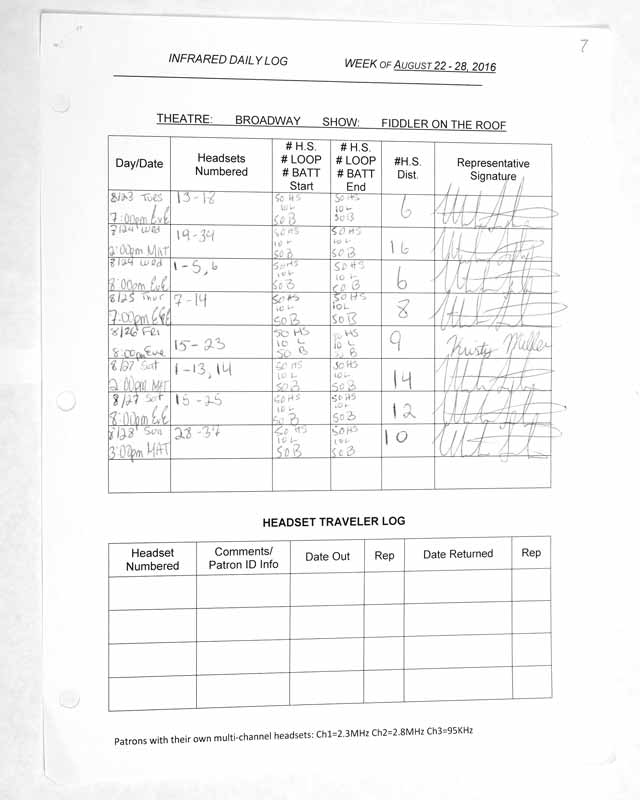 7
INFRARED DAILY LOG WEEK OF AUGUST 22 - 28, 2016
THEATRE: BROADWAY SHOW: FIDDLER ON THE ROOF
Day/Date
Headsets
Numbered
# H.S.
# LOOP
# BATT
Start
# H.S.
# LOOP
# BATT
End
#H.S.
Dist.
Representative
Signature
8/23 Tues
7:00pm Eve
13-18
50 HS
10 L
50 B
50 HS
10 L
50 B
6
8/24 Wed
2:00pm MAT
19-34
50 HS
10 L
50 B
50 HS
10 L
50 B
16
8/24 Wed
8:00pm EVE
1-5, 6
50 HS
10 L
50 B
50 HS
10 L
50 B
6
8/25 Thur
7:00pm EVE
7-14
50 HS
10 L
50 B
50 HS
10 L
50 B
8
8/26 Fri
8:00pm Eve
15-23
50 HS
10 L
50 B
HS
10 L
50 B
9
Kristy Miller
8/27 Sat
2:00pm MAT
1-13, 14
50 HS
10 L
50 B
50 HS
10 L
50 B
14
8/27 Sat
8:00pm EVE
15-25
50 HS
10 L
50 B
50 HS
10 L
50 B
12
8/28 Sun
3:00pm MAT
28-37
50 HS
10 L
50 B
50 HS
10 L
50 B
10
HEADSET TRAVELER LOG
Headset
Numbered
Comments/
Patron ID Info
Date Out
Rep
Date Returned
Rep
Patrons with their own multi-channel headsets: Ch1=2.3MHz Ch2=2.8MHz Ch3=95KHz